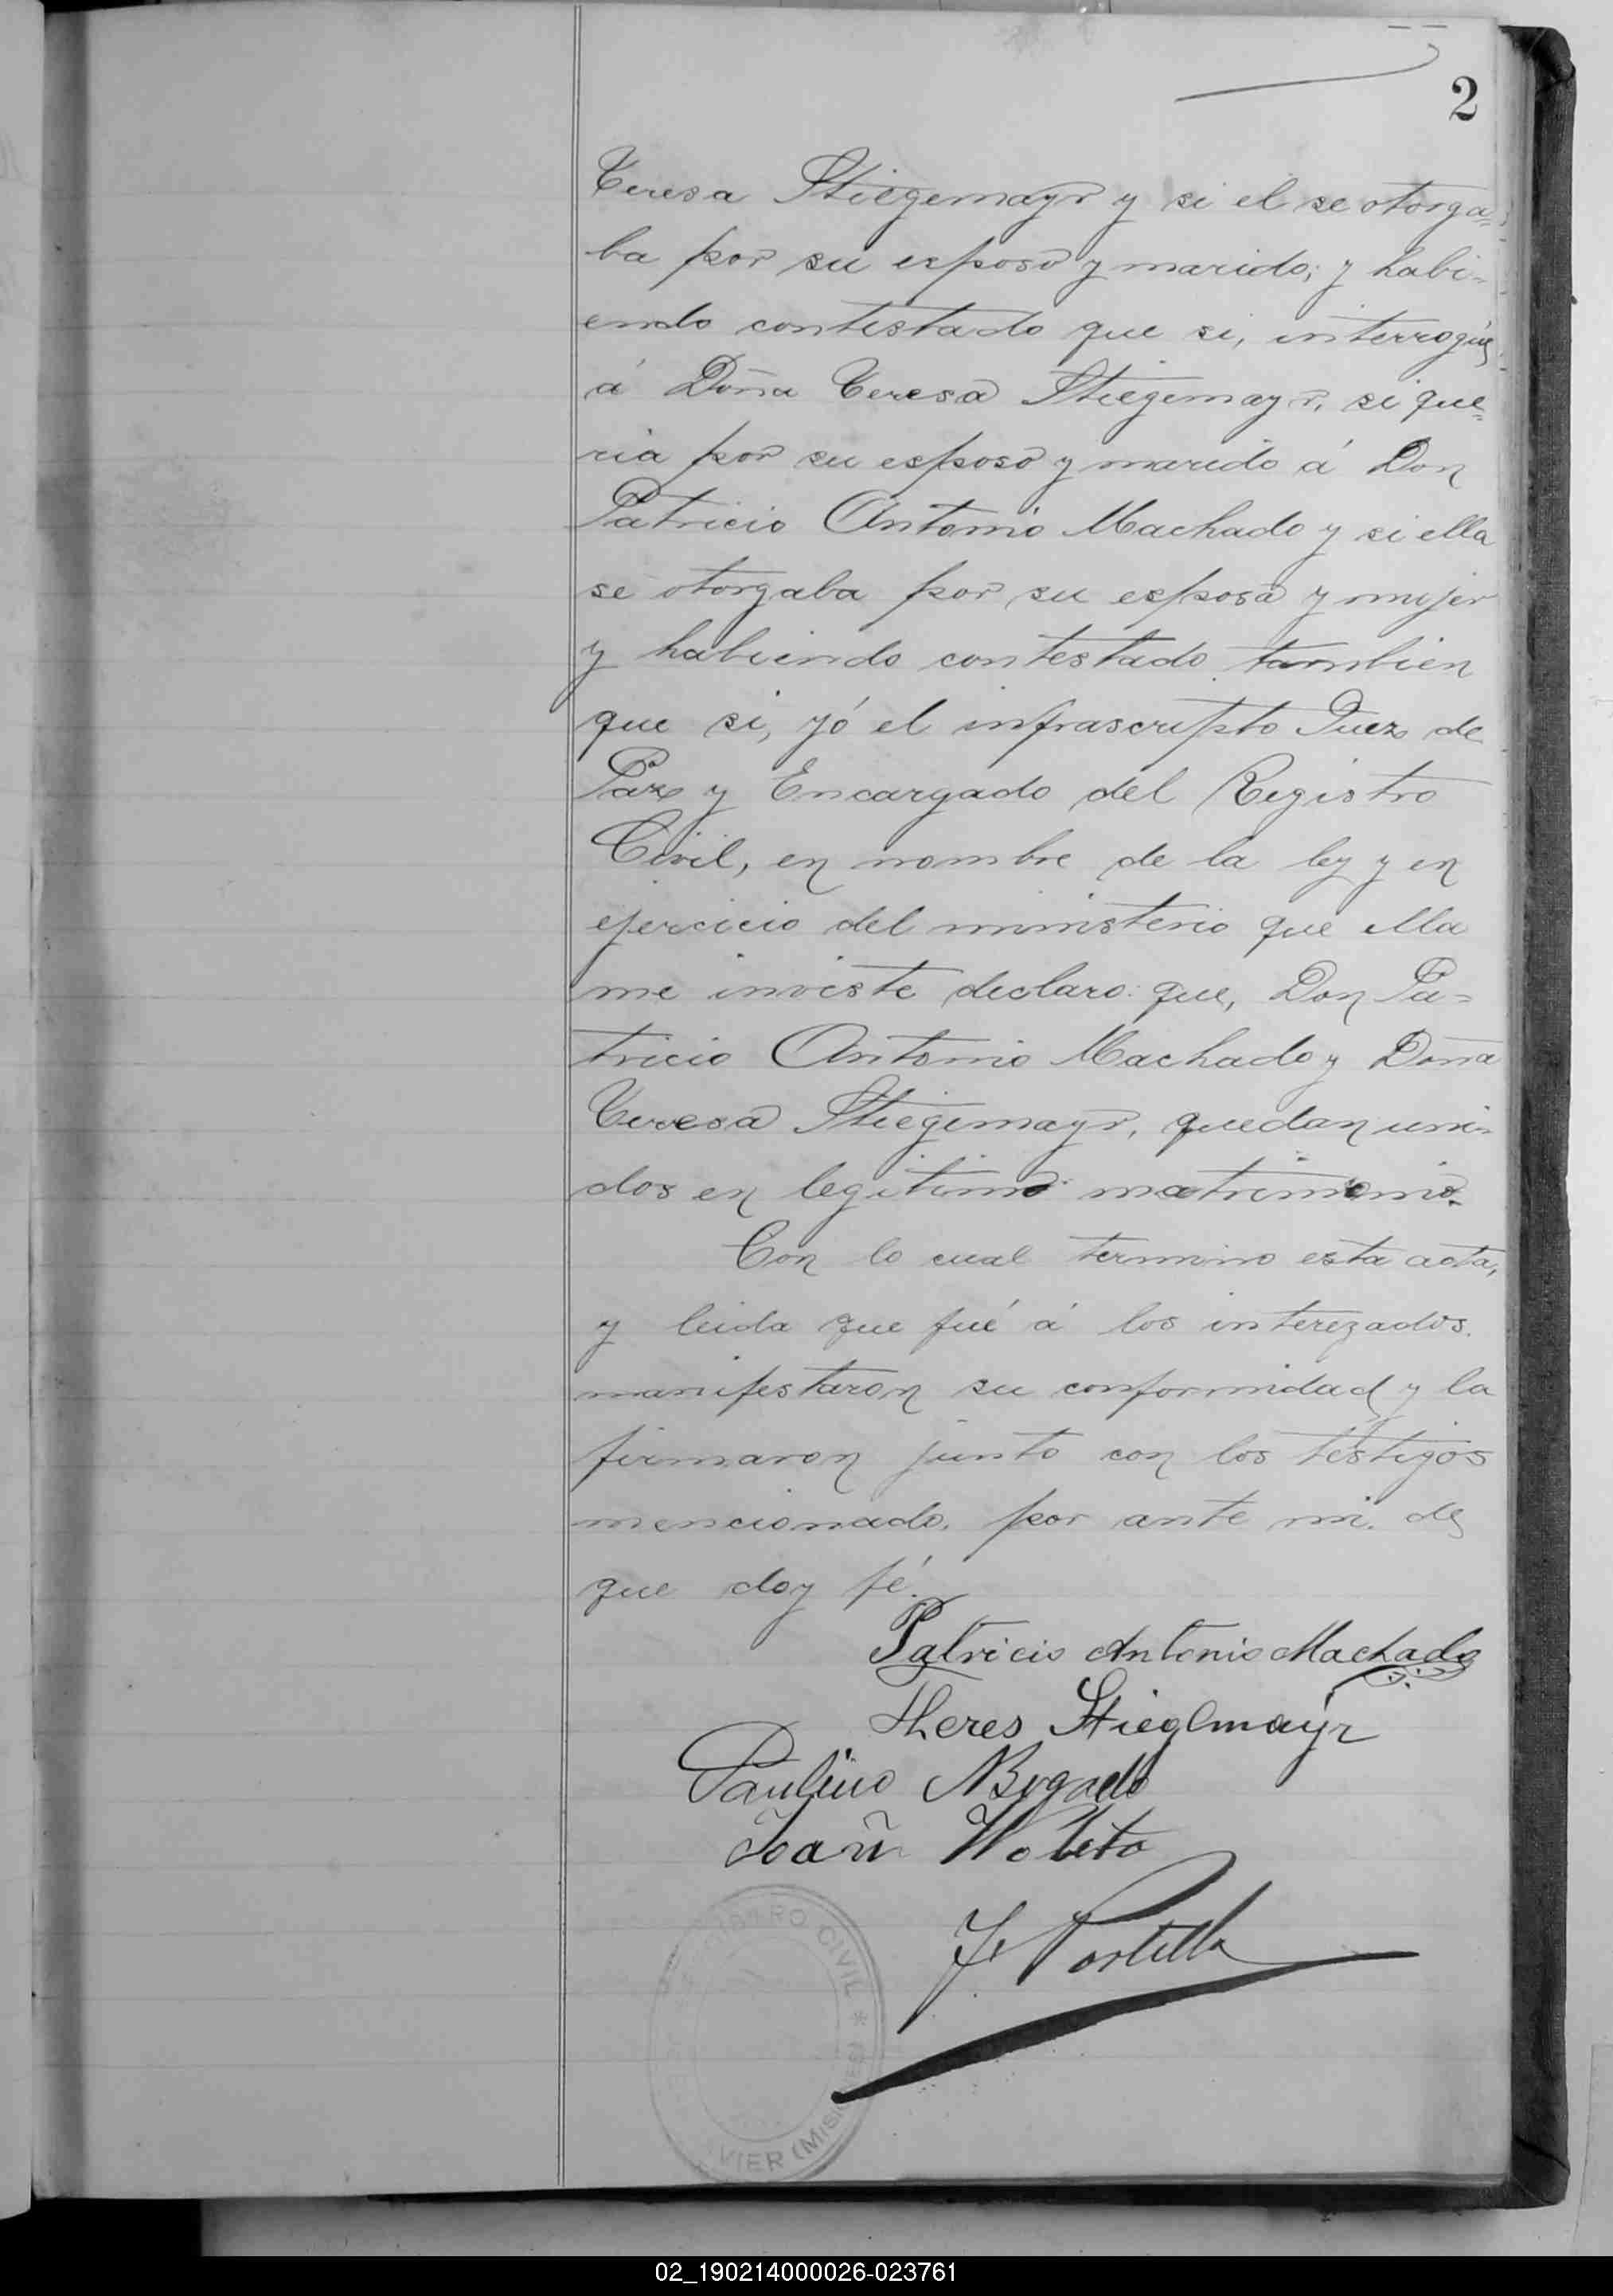 2
Teresa Stiegemayr y si el se otorga=
ba por su esposo y marido; y habi=
endo contestado que si, interrogúe
á Doña Teresa Stiegemayr, si que=
ria por su esposo y marido á Don
Patricio Antonio Machado y si ella
se otorgaba por su esposa y mujer
y habiendo contestado tambien
que si, yó el infrascripto Juez de
Paz y Encargado del Registro
Civil, en nombre de la ley y en
ejercicio del ministerio que ella
me inviste declaro: que, Don Pa=
tricio Antonio Machado y Doña
Teresa Stiegemayr, quedan uni=
dos en legitimo matrimonio.
Con lo cual termino esta acta,
y leida que fué á los interezados.
manifestaron su conformidad y la
firmaron junto con los testigos
mencionado. por ante mi. de
que doy fé.
Patricio Antonio Machado
Theres Stieglmayr
Paulino
Joañ
J. Portilla
REGISTRO CIVIL *
VIER (MISIONES)
02_190214000026-023761